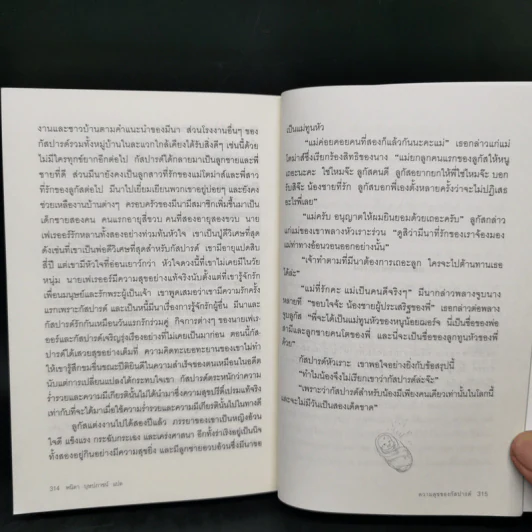 งานและชาวบ้านตามคำแนะนำของมีนา ส่วนโรงงานอื่นๆ ของ
กัสปาร์ดรวมทั้งหมู่บ้านในละแวกใกล้เคียงได้รับสิ่งดีๆ เช่นนี้ด้วย
ไม่มีใครทุกข์ยากอีกต่อไป กัสปาร์ดได้กลายมาเป็นลูกชายและพี่
ชายที่ดี ส่วนมีนายังคงเป็นลูกสาวที่รักของแม่โตมาส์และพี่สาว
ที่รักของลูกัสต่อไป มีนาไปเยี่ยมเยียนพวกเขาอยู่บ่อยๆ และยังคง
ช่วยเหลืองานบ้านต่างๆ ครอบครัวของมีนามีสมาชิกเพิ่มขึ้นมาเป็น
เด็กชายสองคน คนแรกอายุสี่ขวบ คนที่สองอายุสองขวบ นาย
เฟเรออร์รักหลานทั้งสองอย่างท่วมท้นหัวใจ เขาเป็นปู่ดีวิเศษที่สุด
ดังเช่นที่เขาเป็นพ่อดีวิเศษที่สุดสำหรับกัสปาร์ด เขามีอายุแปดสิบ
สี่ปี แต่เขามีหัวใจที่อ่อนเยาว์กว่า หัวใจดวงนี้ที่เขาไม่เคยมีในวัย
หนุ่ม นายเฟเรออร์มีความสุขอย่างแท้จริงนับตั้งแต่ที่เขารู้จักรัก
เพื่อนมนุษย์และรักพระผู้เป็นเจ้า เขาพูดเสมอว่าเขามีความรักครั้ง
แรกเพราะกัสปาร์ด และเป็นหนี้มีนาเรื่องการรู้จักรักผู้อื่น มีนาและ
กัสปาร์ดรักกันเหมือนวันแรกรักร่วมคู่ กิจการต่างๆ ของนายเฟเร-
ออร์และกัสปาร์ดเจริญรุ่งเรืองอย่างที่ไม่เคยเป็นมาก่อน ตอนนี้กัส-
ปาร์ดได้เสวยสุขอย่างเต็มที่ ความคิดทะเยอทะยานของเขาไม่ทำ
ให้เขารู้สึกขมขื่นขณะปีติยินดีในความสำเร็จของตนเหมือนในอดีต
นับแต่การเปลี่ยนแปลงได้กระทบใจเขา กัสปาร์ดตระหนักว่าความ
ร่ำรวยและความมีเกียรตินั้นไม่ได้นำมาซึ่งความสุขปรีดิ์เปรมแท้จริง
เท่ากับที่จะได้มาเมื่อใช้ความร่ำรวยและความมีเกียรตินั้นไปในทางดี
ลูกัสแต่งงานไปได้สองปีแล้ว ภรรยาของเขาเป็นหญิงอ้วน
ใจดี แข็งแรง กระฉับกระเฉง และเคร่งศาสนา อีกทั้งร่าเริงอยู่เป็นนิจ
ทั้งสองอยู่กินอย่างมีความสุขยิ่ง และมีลูกชายอวบอ้วนซึ่งมีนาขอ
314
เป็นแม่ทูนหัว
"แม่ค่อยคอยคนที่สองก็แล้วกันนะคะแม่" เธอกล่าวแก่แม่
โตมาส์ซึ่งเรียกร้องสิทธิของนาง "แม่ยกลูกคนแรกของลูกัสให้หนู
เถอะนะคะ ใช่ไหมจ๊ะ ลูกัสคนดี ลูกัสอยากยกให้พี่ใช่ไหมจ๊ะ บอก
รับสิจ๊ะ น้องชายที่รัก ลูกัสบอกพี่เองตั้งหลายครั้งว่าจะไม่ปฏิเสธ
อะไรพี่เลย"
"แม่ครับ อนุญาตให้ผมยินยอมด้วยเถอะครับ" ลูกัสกล่าว
แก่แม่ของเขาพลางหัวเราะร่วน "ดูสิว่ามีนาที่รักของเราจ้องมอง
แม่ท่าทางอ้อนวอนออกอย่างนั้น"
"เจ้าทำตามที่มีนาต้องการเถอะลูก ใครจะไปต้านทานเธอ
ได้ล่ะ"
"แม่ที่รักคะ แม่เป็นคนดีจริงๆ" มีนากล่าวพลางจูบนาง
หลายที "ขอบใจจ้ะ น้องชายผู้ประเสริฐของพี่" เธอกล่าวต่อพลาง
จูบลูกัส "พี่จะได้เป็นแม่ทูนหัวของหนูน้อยเฌอร์จ นี่เป็นชื่อของพ่อ
สามีและลูกชายคนโตของพี่ และนี่จะเป็นชื่อของลูกทูนหัวของพี่
ด้วย"
กัสปาร์ดหัวเราะ เขาพอใจอย่างยิ่งกับข้อสรุปนี้
"ทำไมน้องจึงไม่เรียกเขาว่ากัสปาร์ดล่ะจ๊ะ"
"เพราะว่ากัสปาร์ดสำหรับน้องมีเพียงคนเดียวเท่านั้นในโลกนี้
และจะไม่มีวันเป็นสองเด็ดขาด"
ความสุขของกัสปาร์ด 315